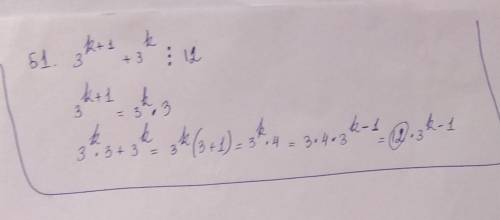 51. 3^{k+1} + 3^k ⋮ 12
3^{k+1} = 3^k · 3
3^k · 3 + 3^k = 3^k (3+1) = 3^k · 4 = 3 · 4 · 3^{k-1} = 12 · 3^{k-1}